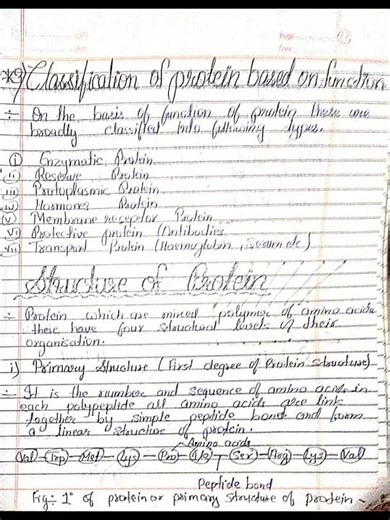 *2) Classification of protein based on function
÷ On the basis of function of protein these are
broadly classified into following types.
i) Enzymatic Protein
ii) Reserve Protein
iii) Protoplasmic Protein
iv) Hormones Protein
v) Membrane receptor Protein
vi) Protective protein (Antibodies
vii) Transport Protein (Haemoglobin, Serum etc)
Structure of Protein
÷ Protein which are mixed polymer of amino acids
these have four structural levels of their
organisation.
i) Primary Structure (First degree of Protein structure)
÷ It is the number and sequence of amino acids in
each polypeptide all amino acids are link
together by simple peptide bond and form
a linear structure of protein.
Amino acids
Val Trp Met Lys Pro Ser Arg Lys Val
Peptide bond
Fig:- 1° of protein or primary structure of protein -